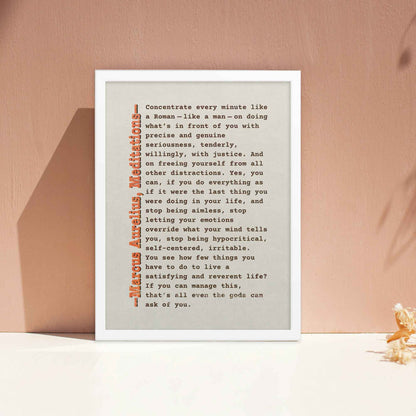 —Marcus Aurelius, Meditations—
Concentrate every minute like
a Roman—like a man—on doing
what's in front of you with
precise and genuine
seriousness, tenderly,
willingly, with justice. And
on freeing yourself from all
other distractions. Yes, you
can, if you do everything as
if it were the last thing you
were doing in your life, and
stop being aimless, stop
letting your emotions
override what your mind tells
you, stop being hypocritical,
self-centered, irritable.
You see how few things you
have to do to live a
satisfying and reverent life?
If you can manage this,
that's all even the gods can
ask of you.